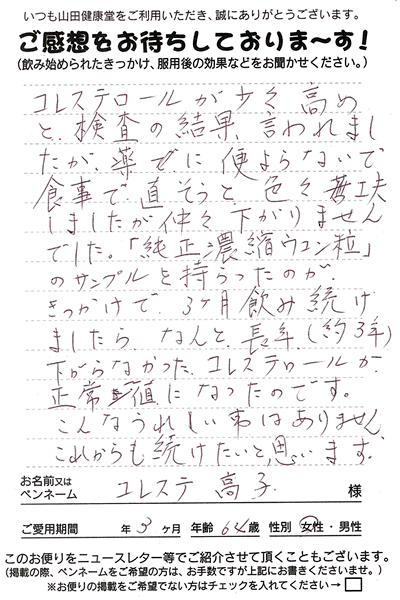 いつも山田健康堂をご利用いただき、誠にありがとうございます。
ご感想をお待ちしておりま〜す!
(飲み始められたきっかけ、服用後の効果などをお聞かせください。)
コレステロールが少々高め
と、検査の結果、言われまし
たが、薬で、に便よらないで
食事で直そうと、色々苦工夫
しましたが仲々下がりません
でした。「純正濃縮ウコン粒」
のサンプルを持らったのが、
きっかけで、3ヶ月飲み続け
ましたら、なんと、長年、(約3年)
下がらなかった、コレステロールが、
正常値、になったのです。
こんなうれしい事はありません
これからも続けたいと、思います。
お名前又は
ペンネーム コレステ 高子 様
ご愛用期間 年 3 ヶ月 年齢 64 歳 性別 女性・男性
このお便りをニュースレター等でご紹介させて頂くこともございます。
(掲載の際、ペンネームをご希望の方は、お手数ですが上記にお書きくださいませ。)
※お便りの掲載をご希望でない方はチェックを入れてください→□